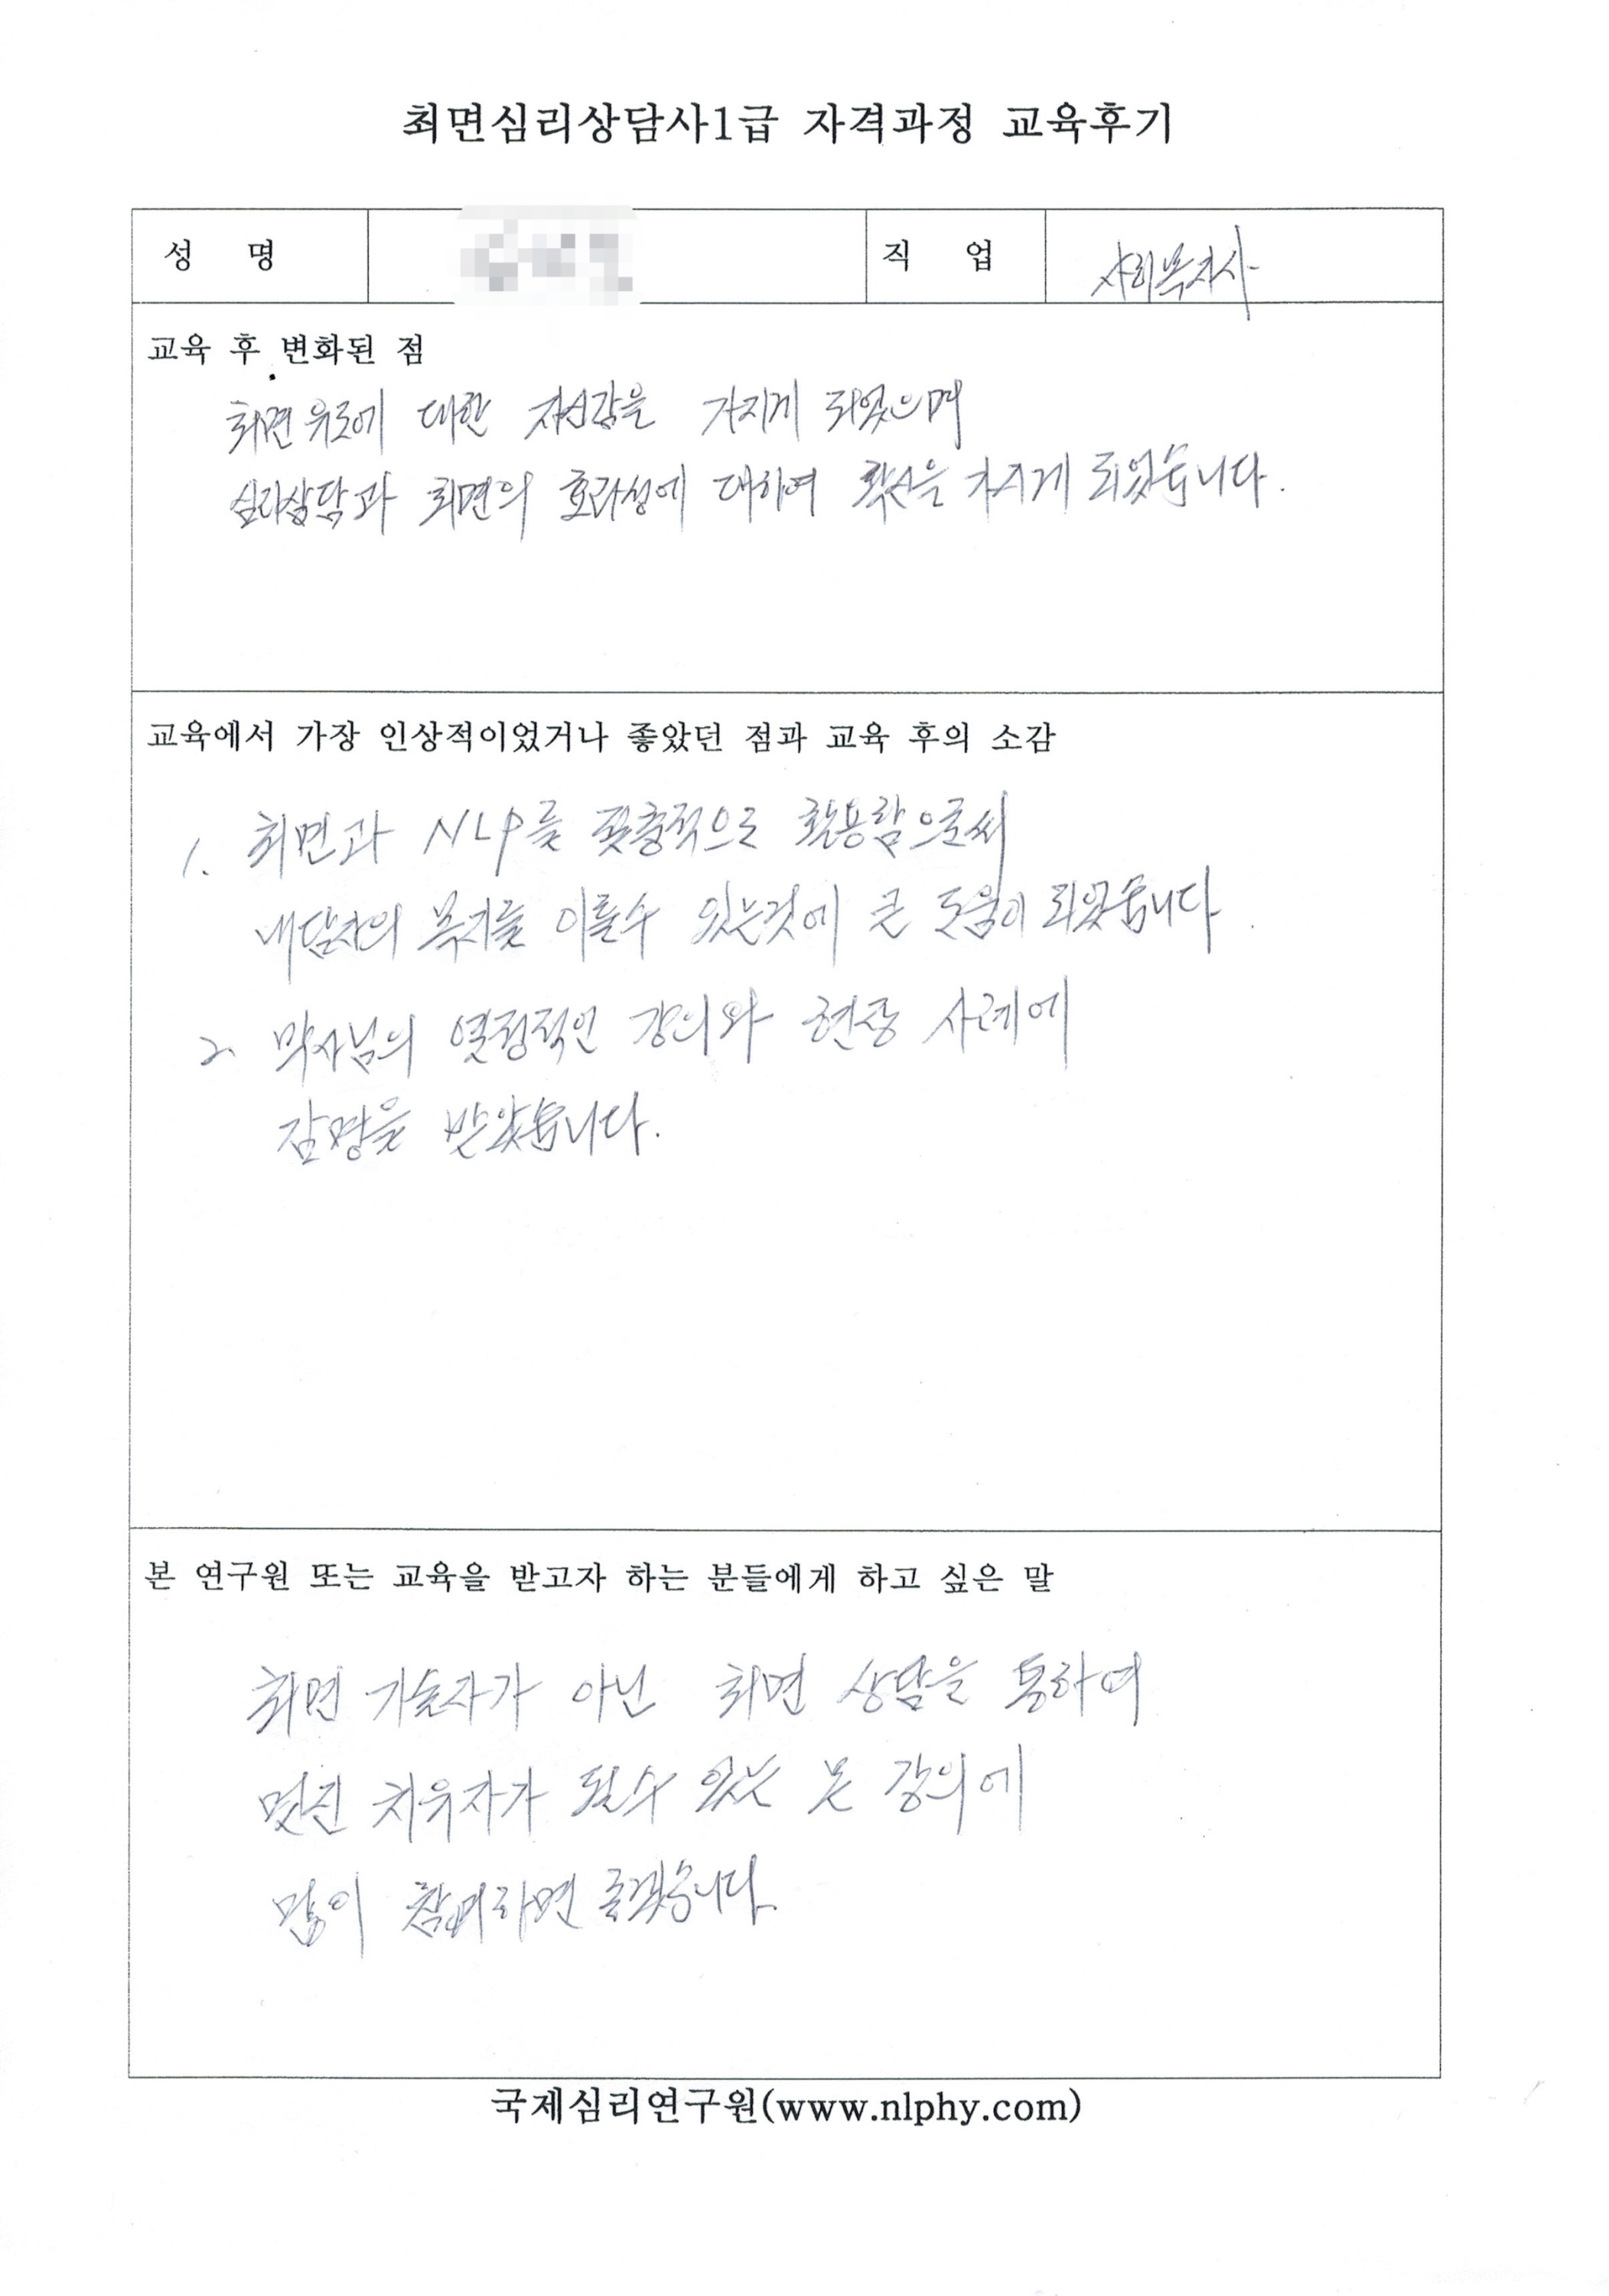 최면심리상담사1급 자격과정 교육후기
성 명
직 업 사회복지사
교육 후 변화된 점
최면유도에 대한 자신감을 가지게 되었으며
심리상담과 최면의 효과성에 대하여 확신을 가지게 되었습니다.
교육에서 가장 인상적이었거나 좋았던 점과 교육 후의 소감
1. 최면과 NLP를 맞춤적으로 활용함으로써
내담자의 복지를 이룰수 있는것에 큰 도움이 되었습니다.
2. 박사님의 열정적인 강의와 현장 사례에
감명을 받았습니다.
본 연구원 또는 교육을 받고자 하는 분들에게 하고 싶은 말
최면 기술자가 아닌 최면 상담을 통하여
멋진 치유자가 될수 있는 본 강의에
많이 참여하면 좋겠습니다.
국제심리연구원(www.nlphy.com)